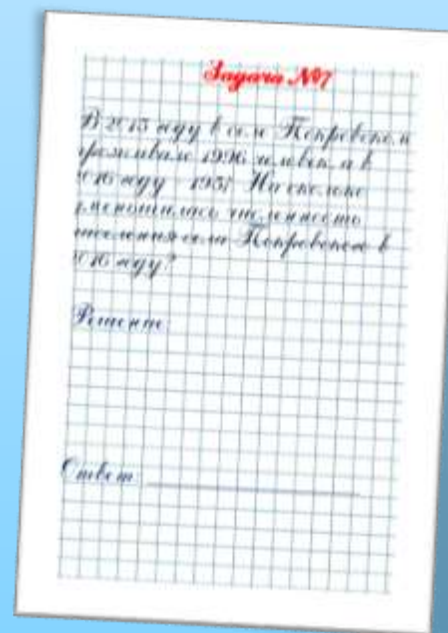 Задача №7
В 2015 году в селе Покровском
проживало 1996 человек, а в
2016 году - 1937. На сколько
уменьшилась численность
населения села Покровского в
2016 году?
Решение:
Ответ: